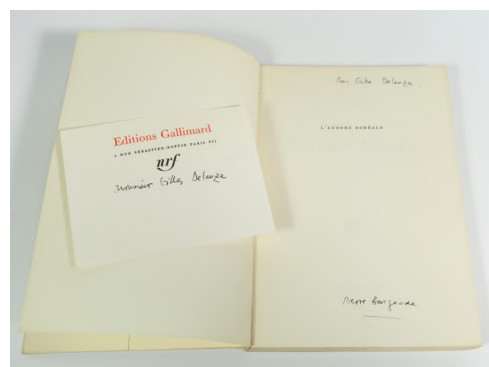 Editions Gallimard
5 RUE SÉBASTIEN-BOTTIN PARIS VII
nrf
Monsieur Gilles Deleuze
Pour Gilles Deleuze
L'AURORE BORÉALE
Pierre Bourgeade